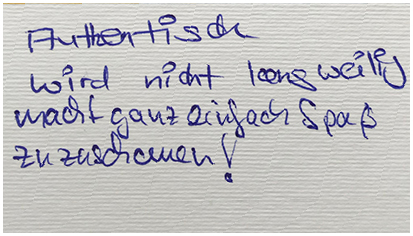 Authentisch
wird nicht langweilig
macht ganz einfach Spaß
zuzuschauen!